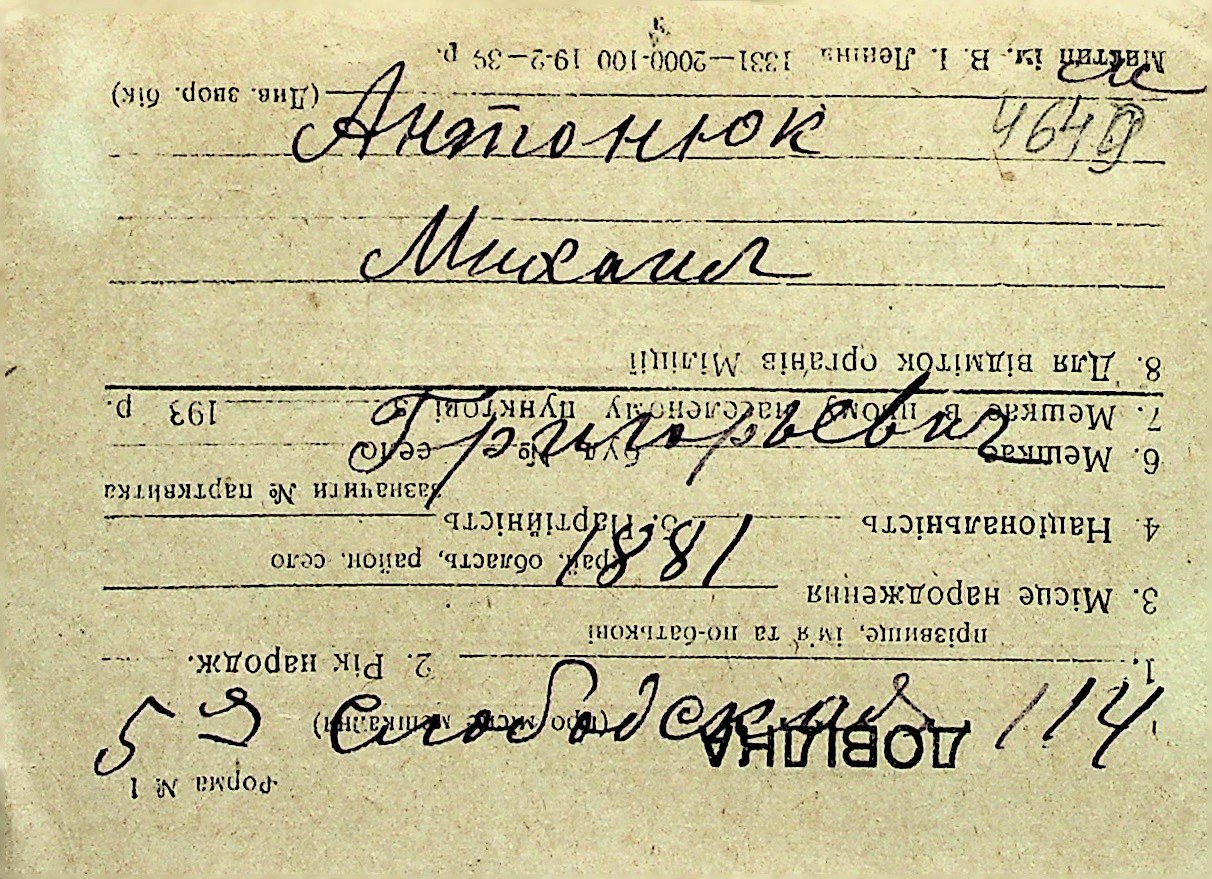 Антонюк
Михаил
Григорьевич
1881
5 я Слободская 114
Форма № 1
ДОВІДКА
(про місце мешкання)
1. 2. Рік народж.
прізвище, ім'я та по-батькові
3. Місце народження
край, область, район, село
4. Національність 5. Партійність
зазначити № партквитка
6. Мешкає буд. № село
7. Мешкає в цьому населеному пунктові з 193 р.
8. Для відміток органів Міліції
(Див. звор. бік)
ім. В. І. Леніна 1331—2000-100 19-2-39 р.